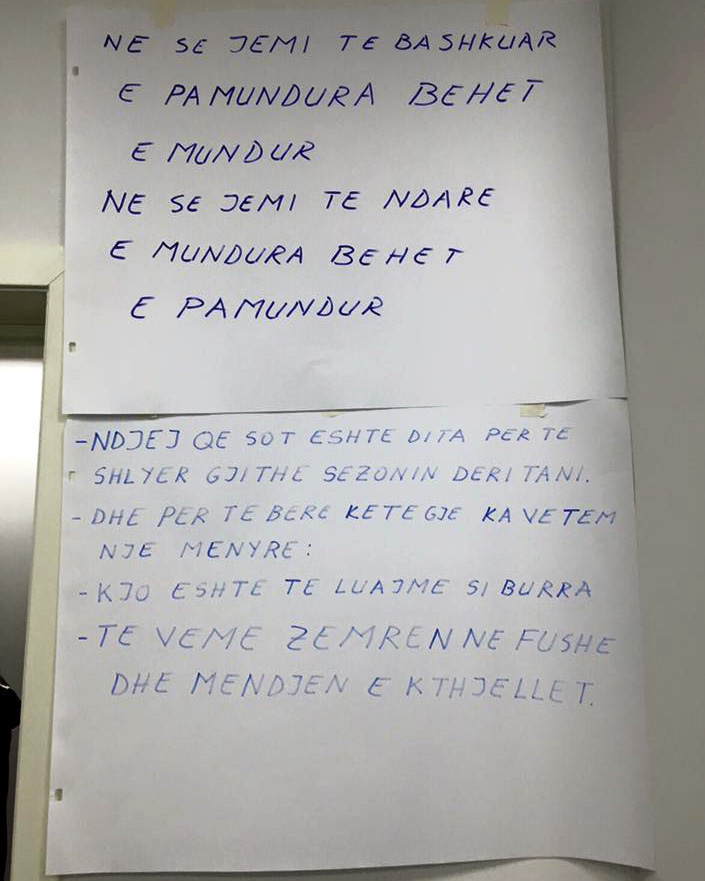 NE SE JEMI TE BASHKUAR
E PAMUNDURA BEHET
E MUNDUR
NE SE JEMI TE NDARE
E MUNDURA BEHET
E PAMUNDUR
-NDJEJ QE SOT ESHTE DITA PER TE
SHLYER GJITHE SEZONIN DERI TANI.
- DHE PER TE BERE KETE GJE KA VETEM
NJE MENYRE:
- KJO ESHTE TE LUAJME SI BURRA
- TE VEME ZEMREN NE FUSHE
DHE MENDJEN E KTHJELLET.